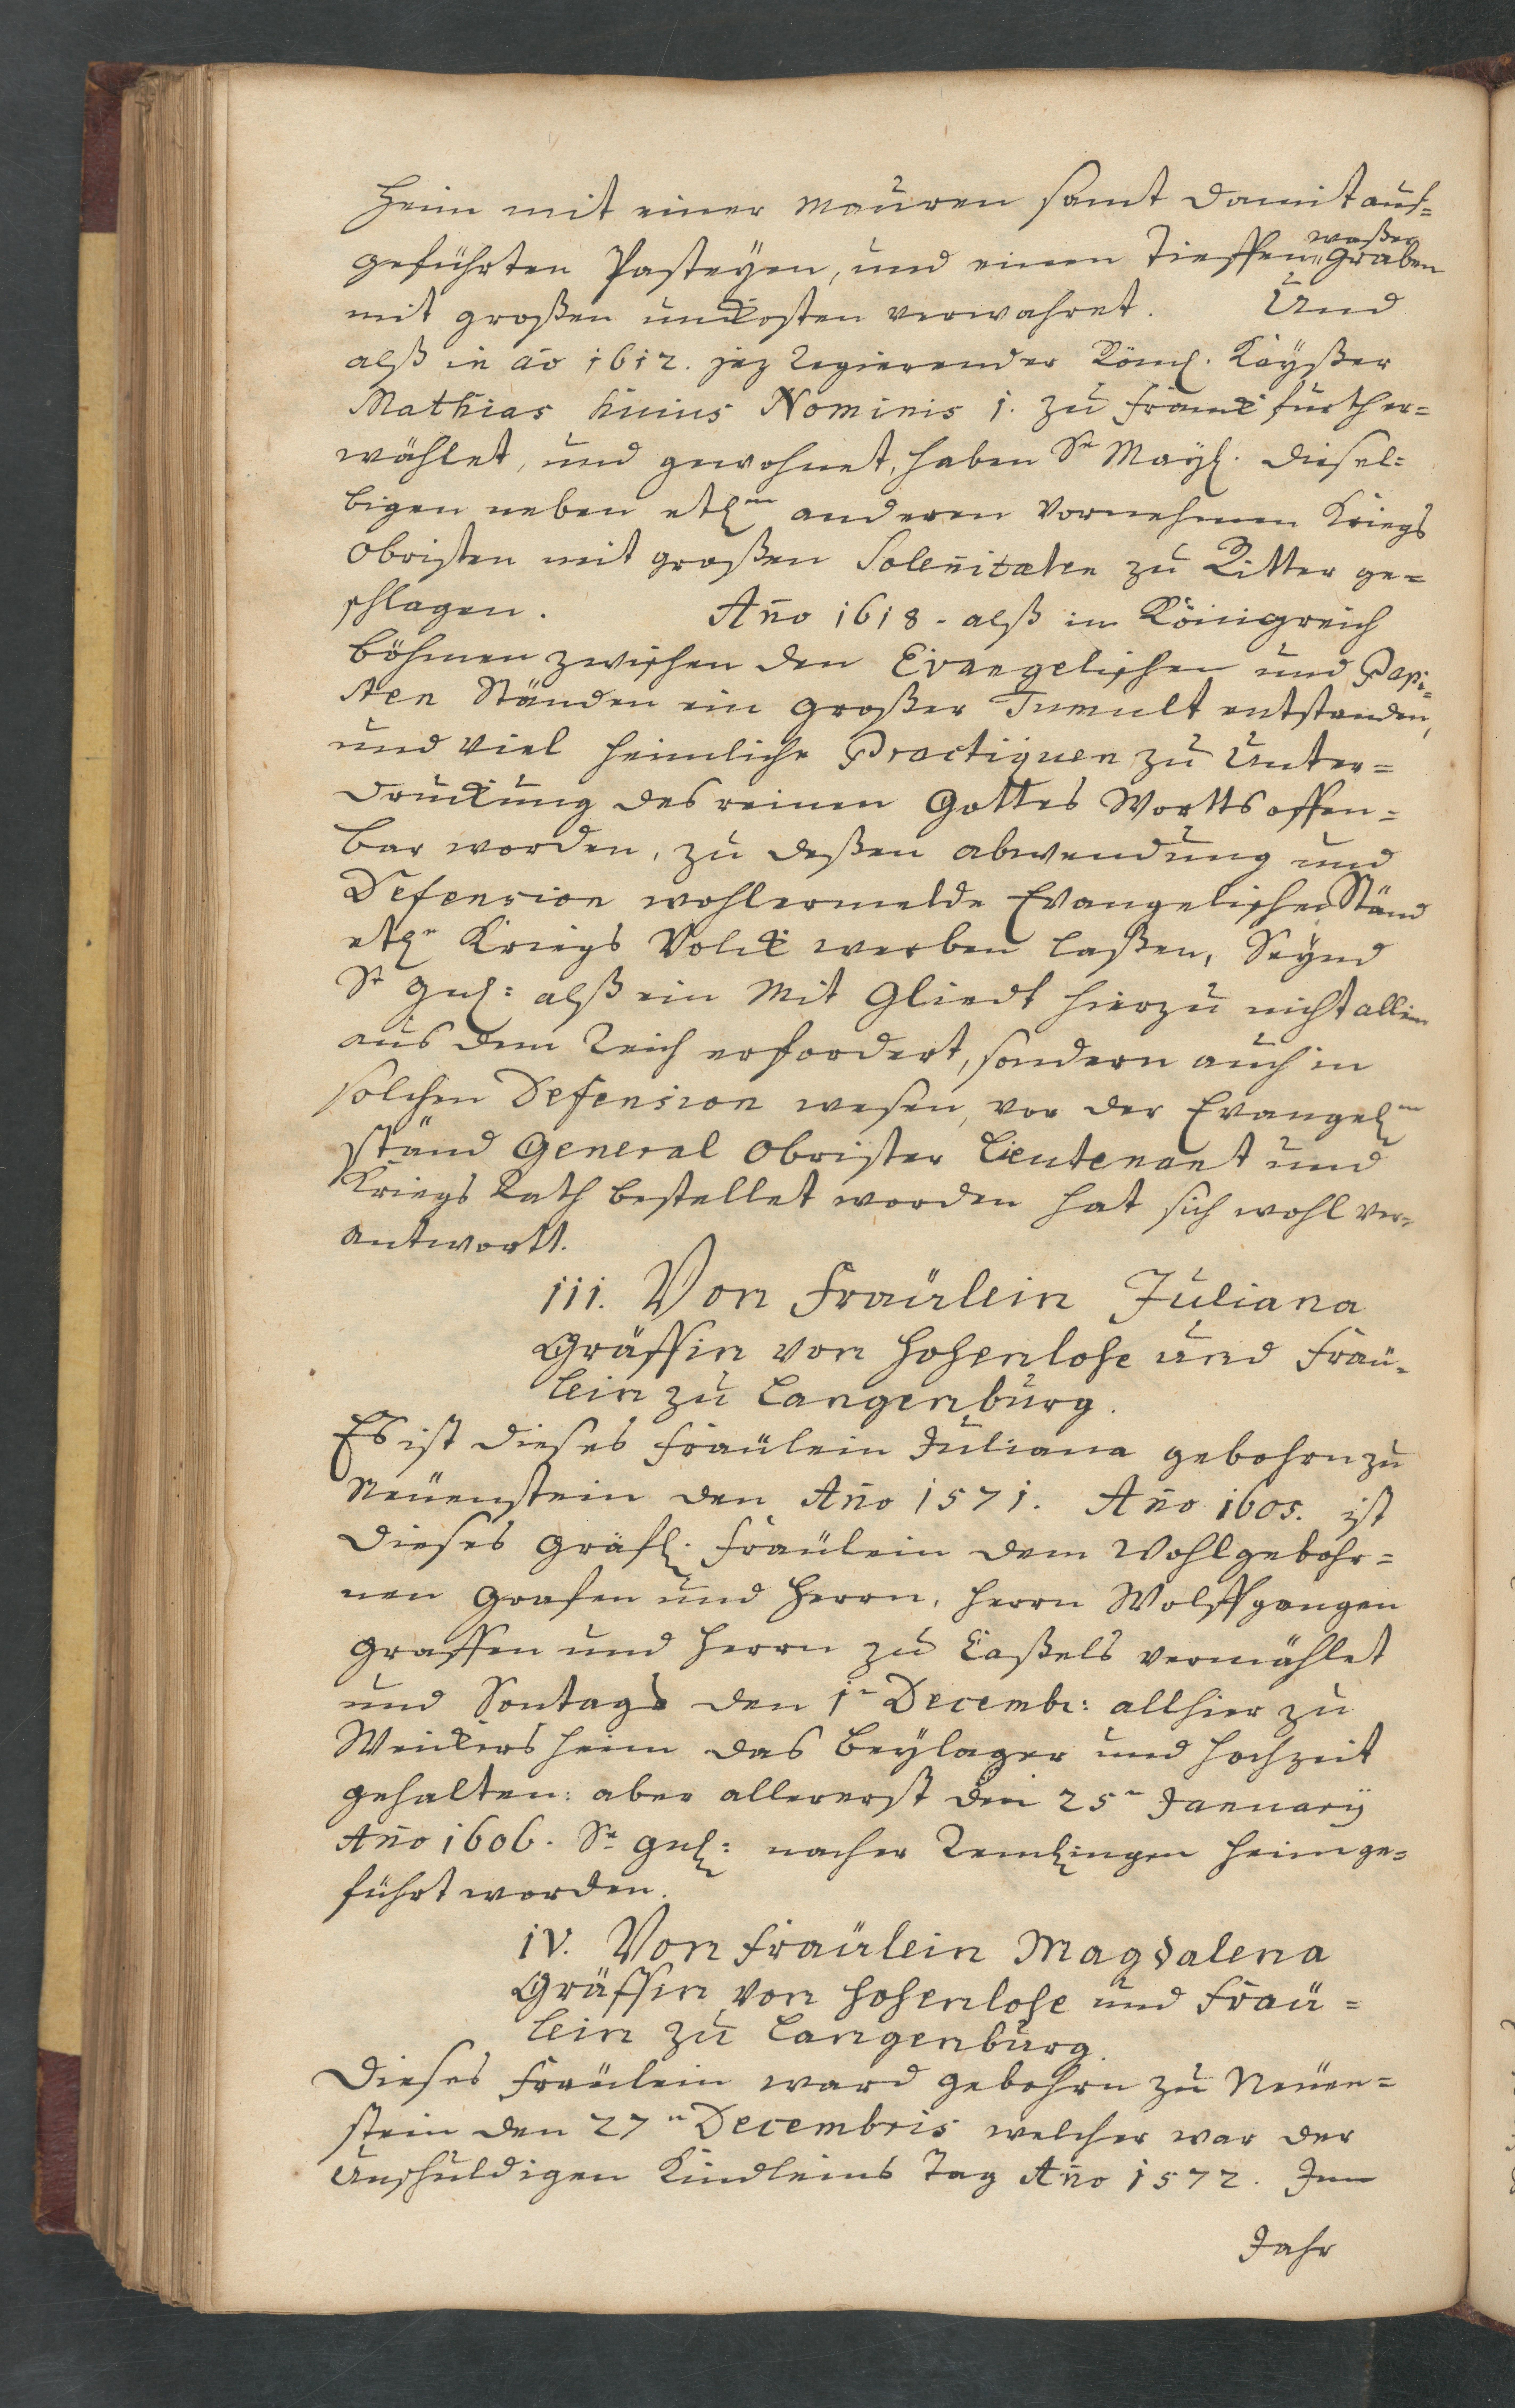 heim mit einer Mauren samt damit auf=
geführten Pasteyen, und einen Tieffen waßer
Graben
mit großen unkosten verwahret. Und
alß in aō 1612. jez Regierender Röml. Kayßer
Mathias huius Nominis 1. zu Franckfurth er=
wählet, und gewohnet, haben Sr Mayl. diesel=
bigen neben etln anderen Vornehmen Kriegs
Obristen mit großen Soleñitæten zu Ritter ge=
schlagen. Año 1618. alß in Königreich
Böhmen zwischen den Evangelischen und Papi=
sten Ständen ein großer Tumult entstanden,
und viel heimliche Practiquen zu Unter=
druckung des reinen Gottes Wortts offen=
bar worden, zu deßen abwendung und
Defension wohlermelde Evangelischen Ständ
etln Kriegs Volck werben laßen, Seynd
Sr Gnl: alß ein Mit Gliedt hierzu nicht allein
aus dem Reich erfordert, sondern auch in
solchen Defension wesen, vor der Evangeln
ständ General Obrister Lieutenant und
Kriegs Rath bestellet worden hat sich wohl ver=
antwortt.
iii. Von Fraülein Juliana
Gräffin von Hohenlohe und Fraü=
lein zu Langenburg.
Es ist dieses Fraülein Juliana gebohrn zu
Neüenstein den Año 1571. Año 1605. ist
dieses Gräfl. Fraülein dem Wohlgebohr=
nen Grafen und Herrn, Herrn Wolffgangen
Graffen und Herrn zu Caßels vermählet
und Sontags den 1n Decembr: allhier zu
Weickersheim das Beylager und Hochzeit
gehalten: aber allererst den 25n January
Año 1606. Sr Gnl: nacher Remlingen heimge=
führt worden.
iv. Von Fraülein Magdalena
Gräffin von Hohenlohe und Fraü=
lein zu Langenburg.
Dieses Fraülein ward gebohrn zu Neüen=
stein den 27n Decembris welcher war der
Unschuldigen Kindleins Tag Año 1572. Im
Jahr